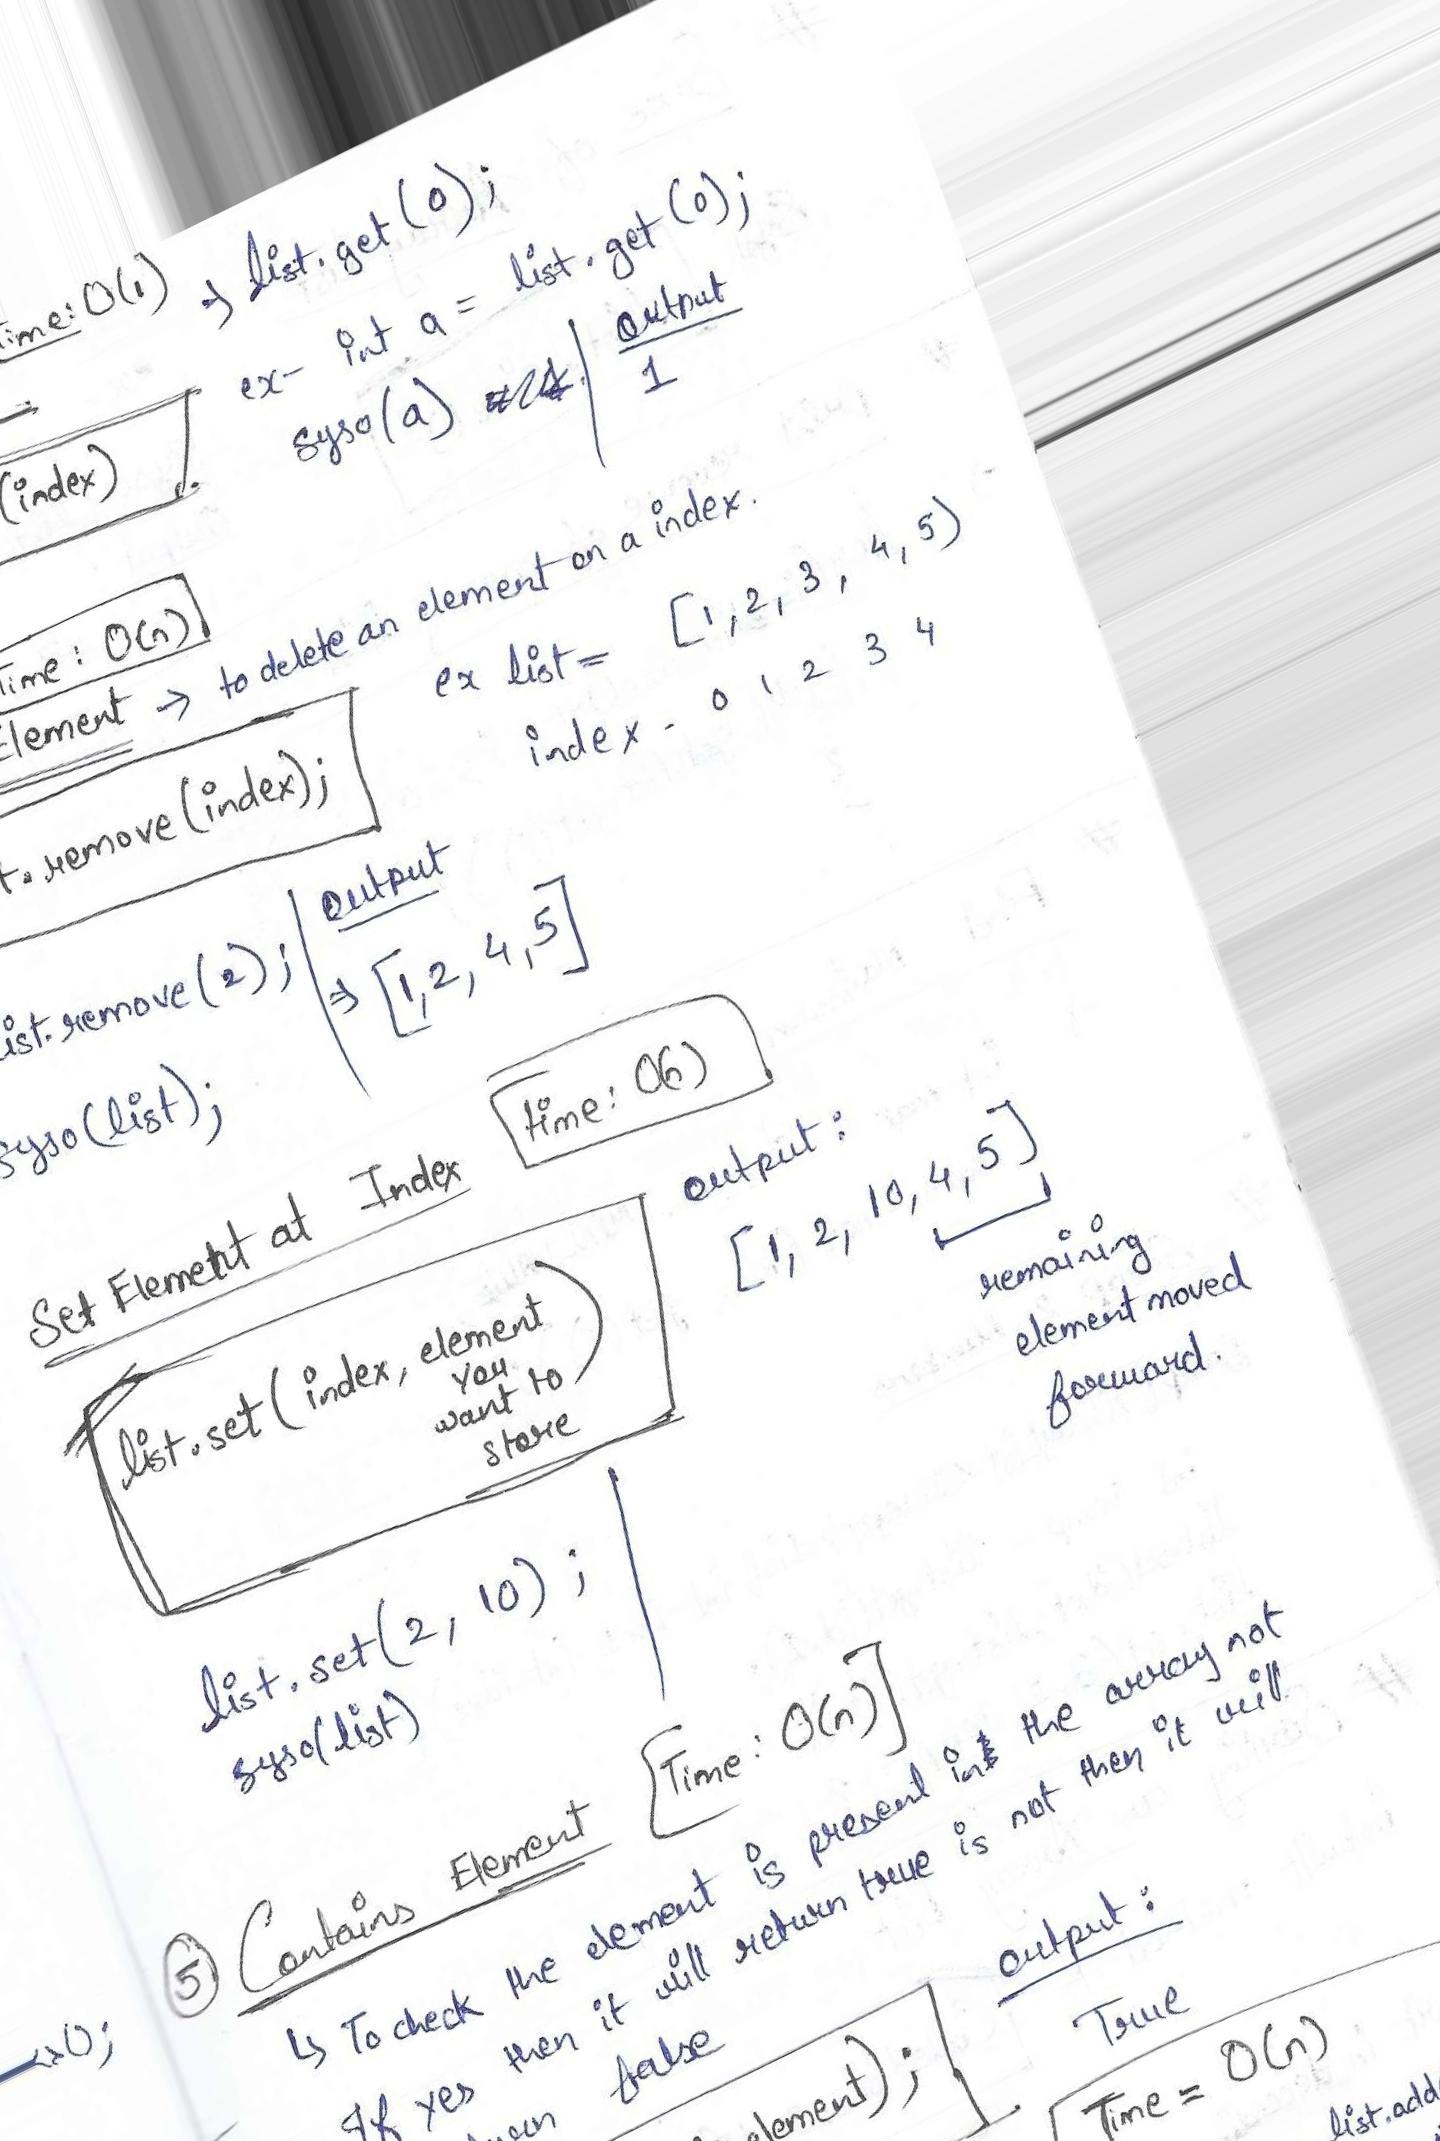 Time: O(1) → list.get(0);
ex- int a = list.get(0);
syso(a)
output
1
(index)
Time: O(n)
Element → to delete an element on a index.
ex list = [1, 2, 3, 4, 5)
index - 0 1 2 3 4
t.remove(index);
list.remove(2);
syso(list);
output
⇒ [1,2, 4,5]
Set Element at Index
time:
list.set(index, element
you
want to
store
)
output:
[1, 2, 10, 4, 5]
remaining
element moved
forward.
list.set(2, 10);
syso(list)
⑤ Contains Element [Time: O(n)]
↳ To check the element is present in the array not
If yes then it will return true is not then it will
false
element);
output:
True
Time = O(n)
list.add